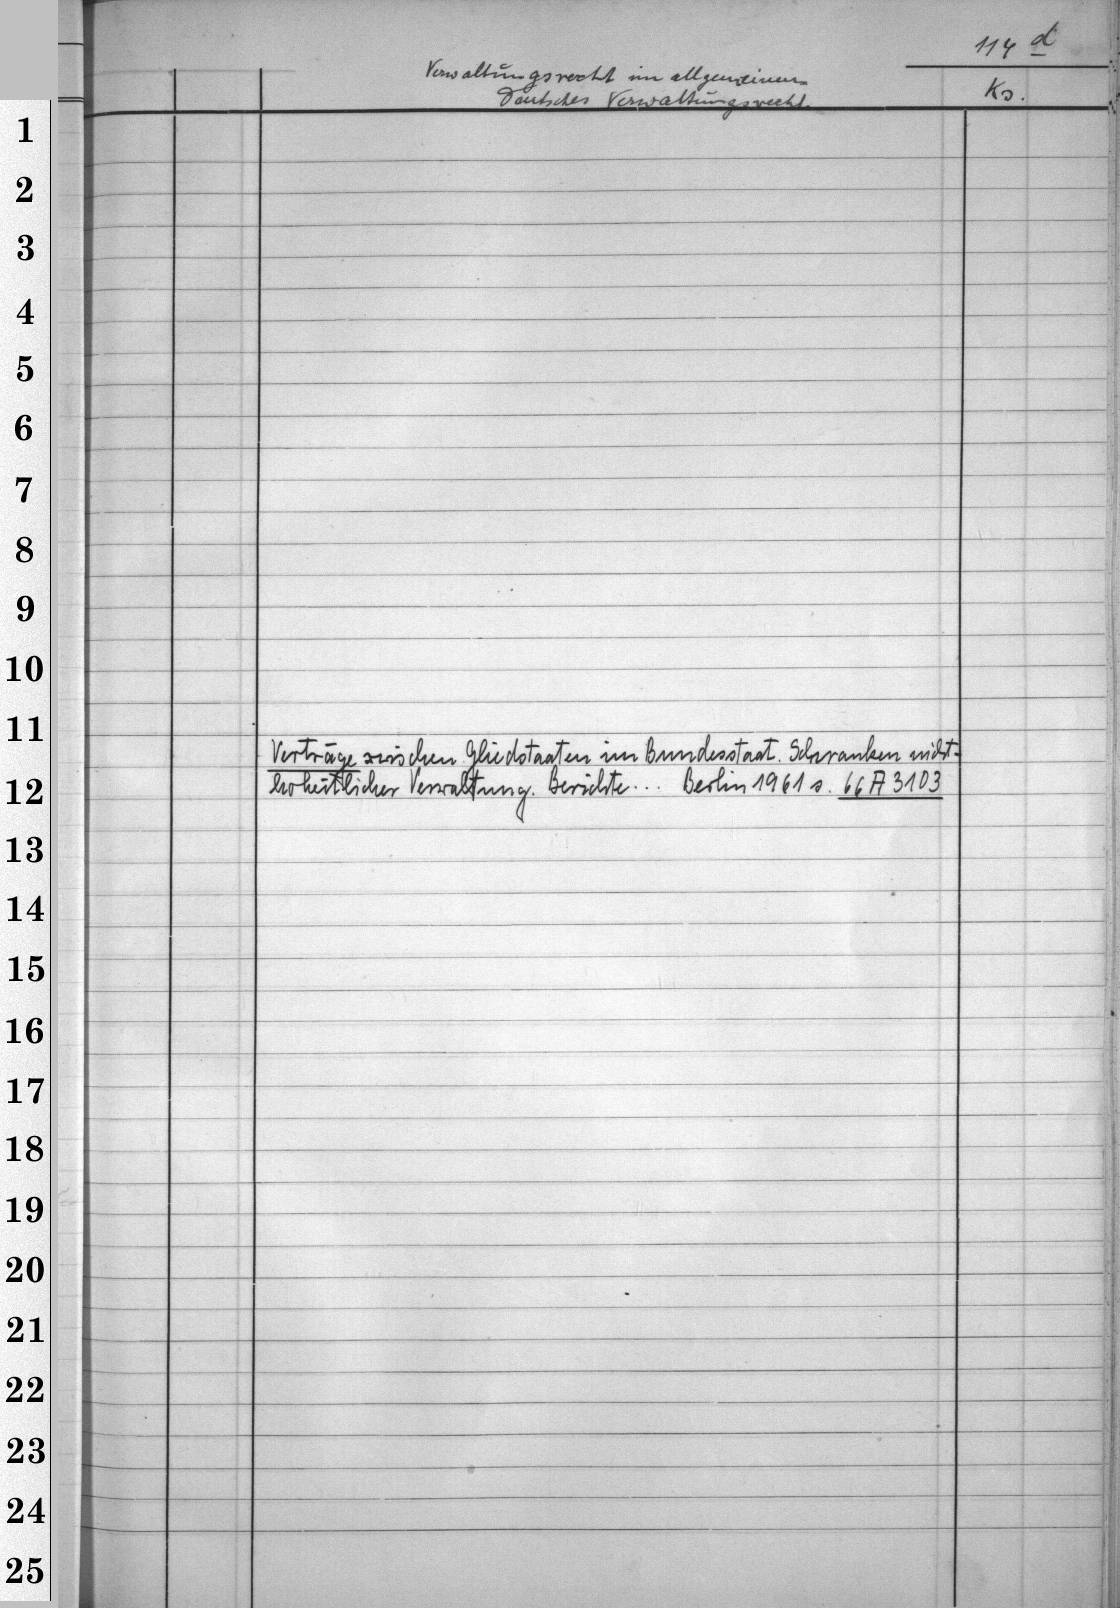 114 d
Verwaltungsrecht im allgemeinen
Deutsches Verwaltungsrecht.
Ks.
1
2
3
4
5
6
7
8
9
10
11
Verträge zwischen Gliedstaaten im Bundesstaat. Schranken nicht-
12
hoheitlicher Verwaltung. Berichte... Berlin 1961 s. 66 A 3103
13
14
15
16
17
18
19
20
21
22
23
24
25